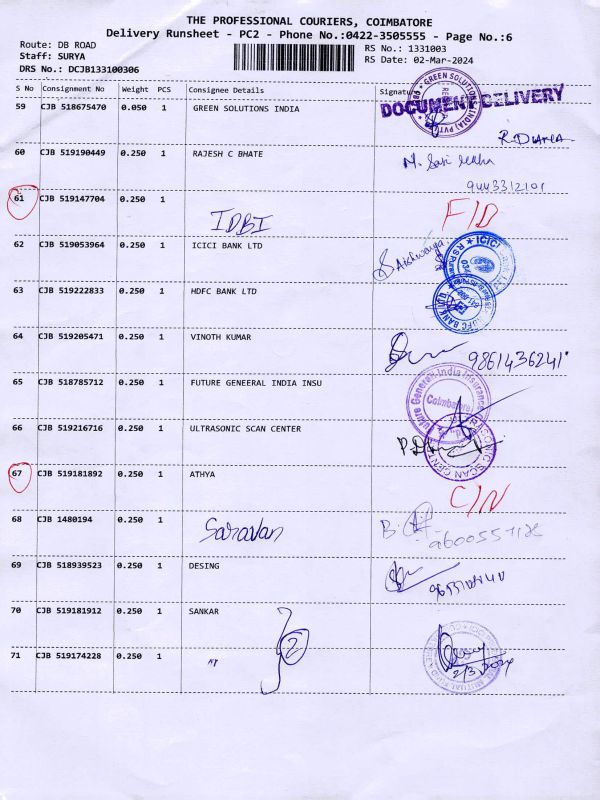 THE PROFESSIONAL COURIERS, COIMBATORE
Delivery Runsheet - PC2 - Phone No.:0422-3505555 - Page No.:6
Route: DB ROAD
RS No.: 1331003
Staff: SURYA
RS Date: 02-Mar-2024
DRS No.: DCJB133100306
S No Consignment No Weight PCS Consignee Details Signature
DOCUMENT DELIVERY
59 CJB 518675470 0.050 1 GREEN SOLUTIONS INDIA
60 CJB 519190449 0.250 1 RAJESH C BHATE
9443312101
61 CJB 519147704 0.250 1 IDBI F/D
62 CJB 519053964 0.250 1 ICICI BANK LTD Aishwarya ICICI
63 CJB 519222833 0.250 1 HDFC BANK LTD
64 CJB 519205471 0.250 1 VINOTH KUMAR 9861436241
65 CJB 518785712 0.250 1 FUTURE GENEERAL INDIA INSU
Future Generali India Insurance
Coimbatore
66 CJB 519216716 0.250 1 ULTRASONIC SCAN CENTER
67 CJB 519181892 0.250 1 ATHYA C/N
68 CJB 1480194 0.250 1 Saravan
69 CJB 518939523 0.250 1 DESING
70 CJB 519181912 0.250 1 SANKAR
2
71 CJB 519174228 0.250 1
2/3/2024